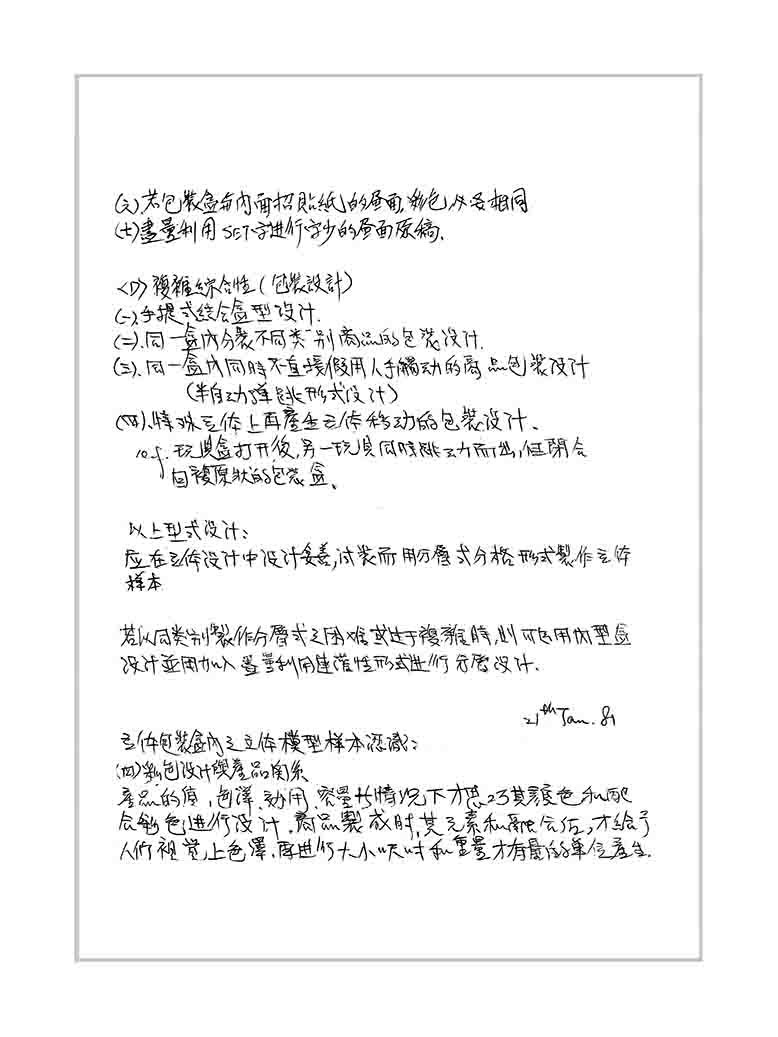 (六).若包裝盒有內面招貼紙的层面,彩色必要相同
(七)盡量利用SET字進行字少的层面原稿.
<D>複雜綜合性(包裝設計)
(一).手提式綜合盒型設计.
(二).同一盒內分裝不同类别商品的包裝设计.
(三).同一盒內同時不直接假用人手觸动的商品包裝设计
(半自动彈跳形式设计)
(四).特殊立体上再產生立体移动的包裝设计.
玩具盒打开後,另一玩具同時跳动而出,但閉合
回複原狀的包裝盒.
以上型式设计:
应在立体设计中设计妥善,试裝而用分層式分格形式製作立体
样本
若以同类别製作分層式之困难或过于複雜時,则可应用內型盒
设计並用加入盡量利用連落性形式进行分層设计.
21th Jan. 81
立体包裝盒內之立体模型样本認識:
(四)彩色设计與產品関系
產品的質,色澤,効用,容量於情況下才
合彩色進行设计.商品製成时,其元素和融合后,才給予
人们視觉上色澤.再进行大小呎吋和重量才有量的单位產生.